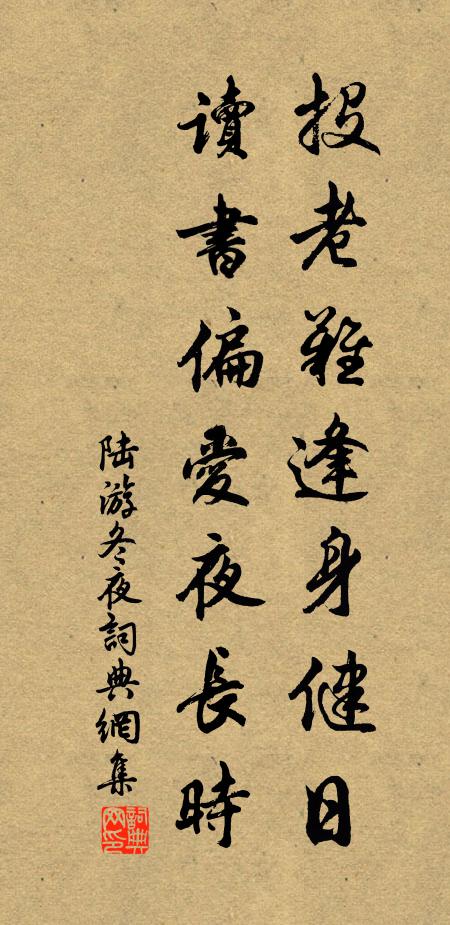 投老難逢身健日
讀書偏愛夜長時
陆游冬夜詞典網集
詞典网印